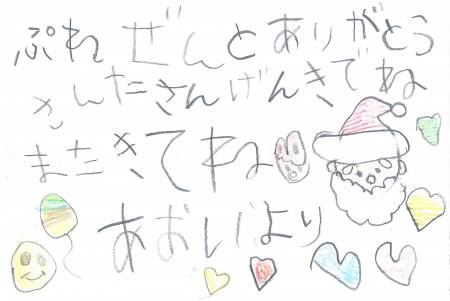 ぷれぜんとありがとう
さんたさんげんきでね
またきてね
あおいより